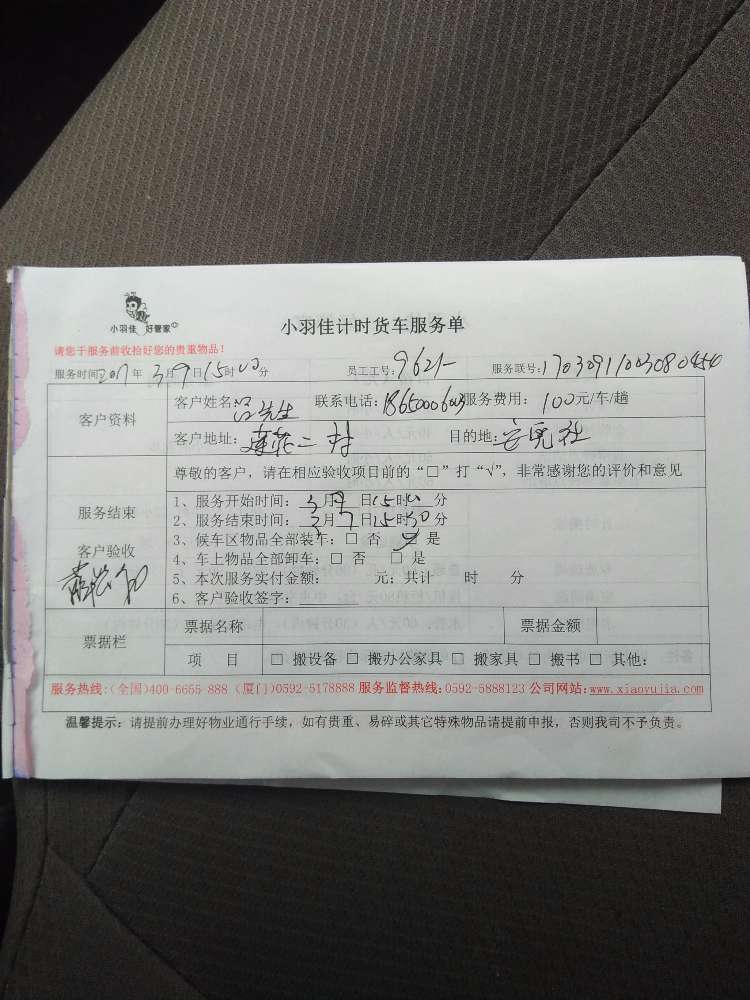 小羽佳 好管家
小羽佳计时货车服务单
请您于服务前收拾好您的贵重物品！
服务时间：2017年 3月9日15时00分 员工工号：9621 服务联号：17030911003080454
客户资料
客户姓名：吕先生 联系电话： 服务费用：100元/车/趟
客户地址：莲花二村 目的地：安兜社
尊敬的客户，请在相应验收项目前的“□”打“√”，非常感谢您的评价和意见
服务结束
客户验收
1、服务开始时间：3月9日15时00分
2、服务结束时间：3月9日15时30分
3、候车区物品全部装车：□ 否 ☑ 是
4、车上物品全部卸车：□ 否 □ 是
5、本次服务实付金额： 元；共计 时 分
6、客户验收签字：
票据栏
票据名称 票据金额
项 目 □ 搬设备 □ 搬办公家具 □ 搬家具 □ 搬书 □ 其他：
服务热线：(全国)400-6655 888 (厦门)0592-5178888 服务监督热线：0592-5888123 公司网站：www.xiaoyujia.com
温馨提示：请提前办理好物业通行手续，如有贵重、易碎或其它特殊物品请提前申报，否则我司不予负责。